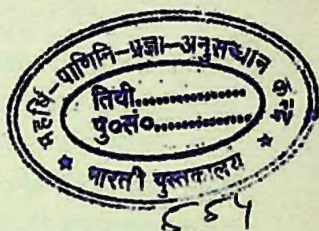 महर्षि-पाणिनि-प्रज्ञा-अनुसन्धान केन्द्र
तिथी...............
पु०सं०...............
* भारती पुस्तकालय *
५५५